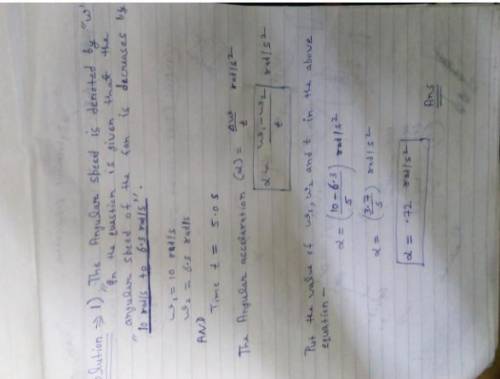 olution ⇒ 1) The Angular speed is denoted by "w"
" In the question is given that the
" angular speed of the fan is decreases by
10 rad/s to 6.3 rad/s".
w₁ = 10 rad/s
w₂ = 6.3 rad/s
AND
Time t = 5.0 s
The Angular acceleration (α) = Δw/t rad/s²
α = w₁-w₂/t rad/s²
Put the value of w₁, w₂ and t in the above
equation -
α = (10-6.3/5) rad/s²
α = (3.7/5) rad/s²
α = .72 rad/s²
Ans